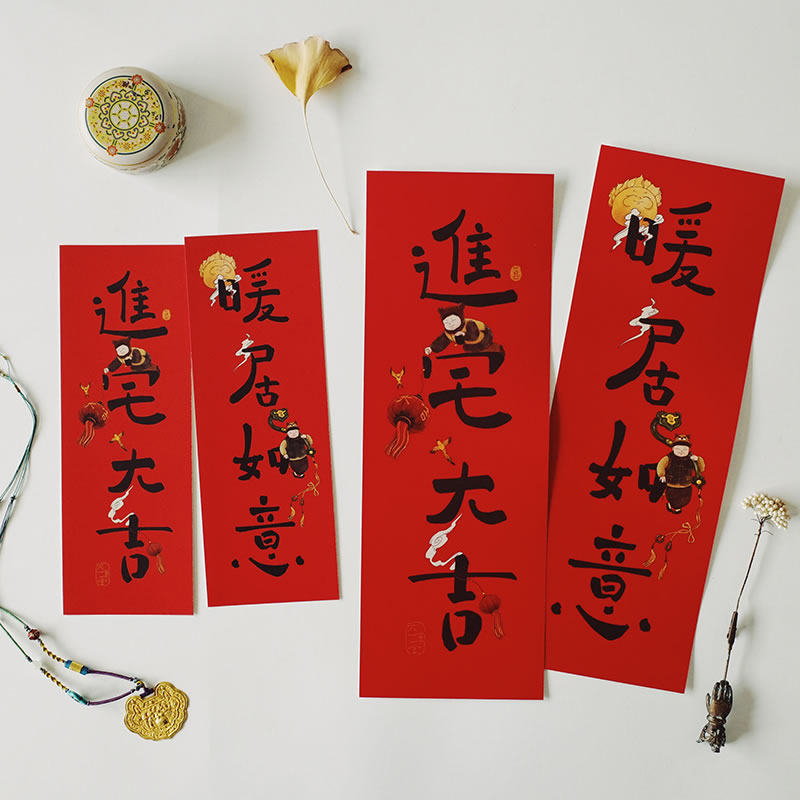 進宅大吉
暖居如意
進宅大吉
暖居如意